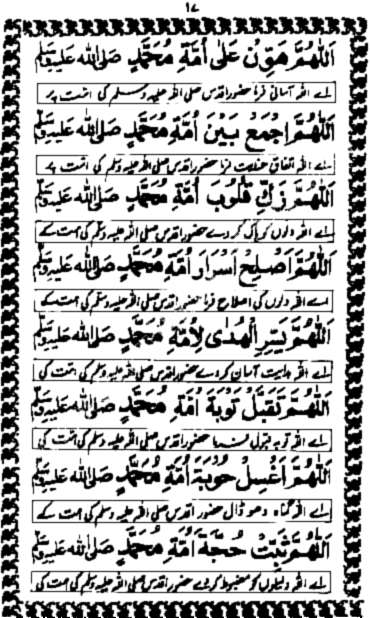 ١٧
اَللّٰهُمَّ هَوِّنْ عَلٰی اُمَّةِ مُحَمَّدٍ صَلَّی اللّٰه عَلَیْهِ وَسَلَّم
اے اللہ آسانی فرما حضور اقدس صلی اللہ علیہ وسلم کی امت پر
اَللّٰهُمَّ اجْمَعْ بَیْنَ اُمَّةِ مُحَمَّدٍ صَلَّی اللّٰه عَلَیْهِ وَسَلَّم
اے اللہ اتفاق عنایت فرما حضور اقدس صلی اللہ علیہ وسلم کی امت پر
اَللّٰهُمَّ زَكِّ قُلُوْبَ اُمَّةِ مُحَمَّدٍ صَلَّی اللّٰه عَلَیْهِ وَسَلَّم
اے اللہ دلوں کو پاک کر دے حضور اقدس صلی اللہ علیہ وسلم کی امت کے
اَللّٰهُمَّ اَصْلِحْ اَسْرَارَ اُمَّةِ مُحَمَّدٍ صَلَّی اللّٰه عَلَیْهِ وَسَلَّم
اے اللہ دلوں کی اصلاح فرما حضور اقدس صلی اللہ علیہ وسلم کی امت کے
اَللّٰهُمَّ یَسِّرِ الْهُدٰی لِاُمَّةِ مُحَمَّدٍ صَلَّی اللّٰه عَلَیْهِ وَسَلَّم
اے اللہ ہدایت آسان کر دے حضور اقدس صلی اللہ علیہ وسلم کی امت کی
اَللّٰهُمَّ تَقَبَّلْ تَوْبَةَ اُمَّةِ مُحَمَّدٍ صَلَّی اللّٰه عَلَیْهِ وَسَلَّم
اے اللہ توبہ قبول فرما حضور اقدس صلی اللہ علیہ وسلم کی امت کی
اَللّٰهُمَّ اغْسِلْ حَوْبَةَ اُمَّةِ مُحَمَّدٍ صَلَّی اللّٰه عَلَیْهِ وَسَلَّم
اے اللہ گناہ دھو ڈال حضور اقدس صلی اللہ علیہ وسلم کی امت کے
اَللّٰهُمَّ ثَبِّتْ حُجَّةَ اُمَّةِ مُحَمَّدٍ صَلَّی اللّٰه عَلَیْهِ وَسَلَّم
اے اللہ دلیلوں کو مضبوط کر دے حضور اقدس صلی اللہ علیہ وسلم کی امت کی